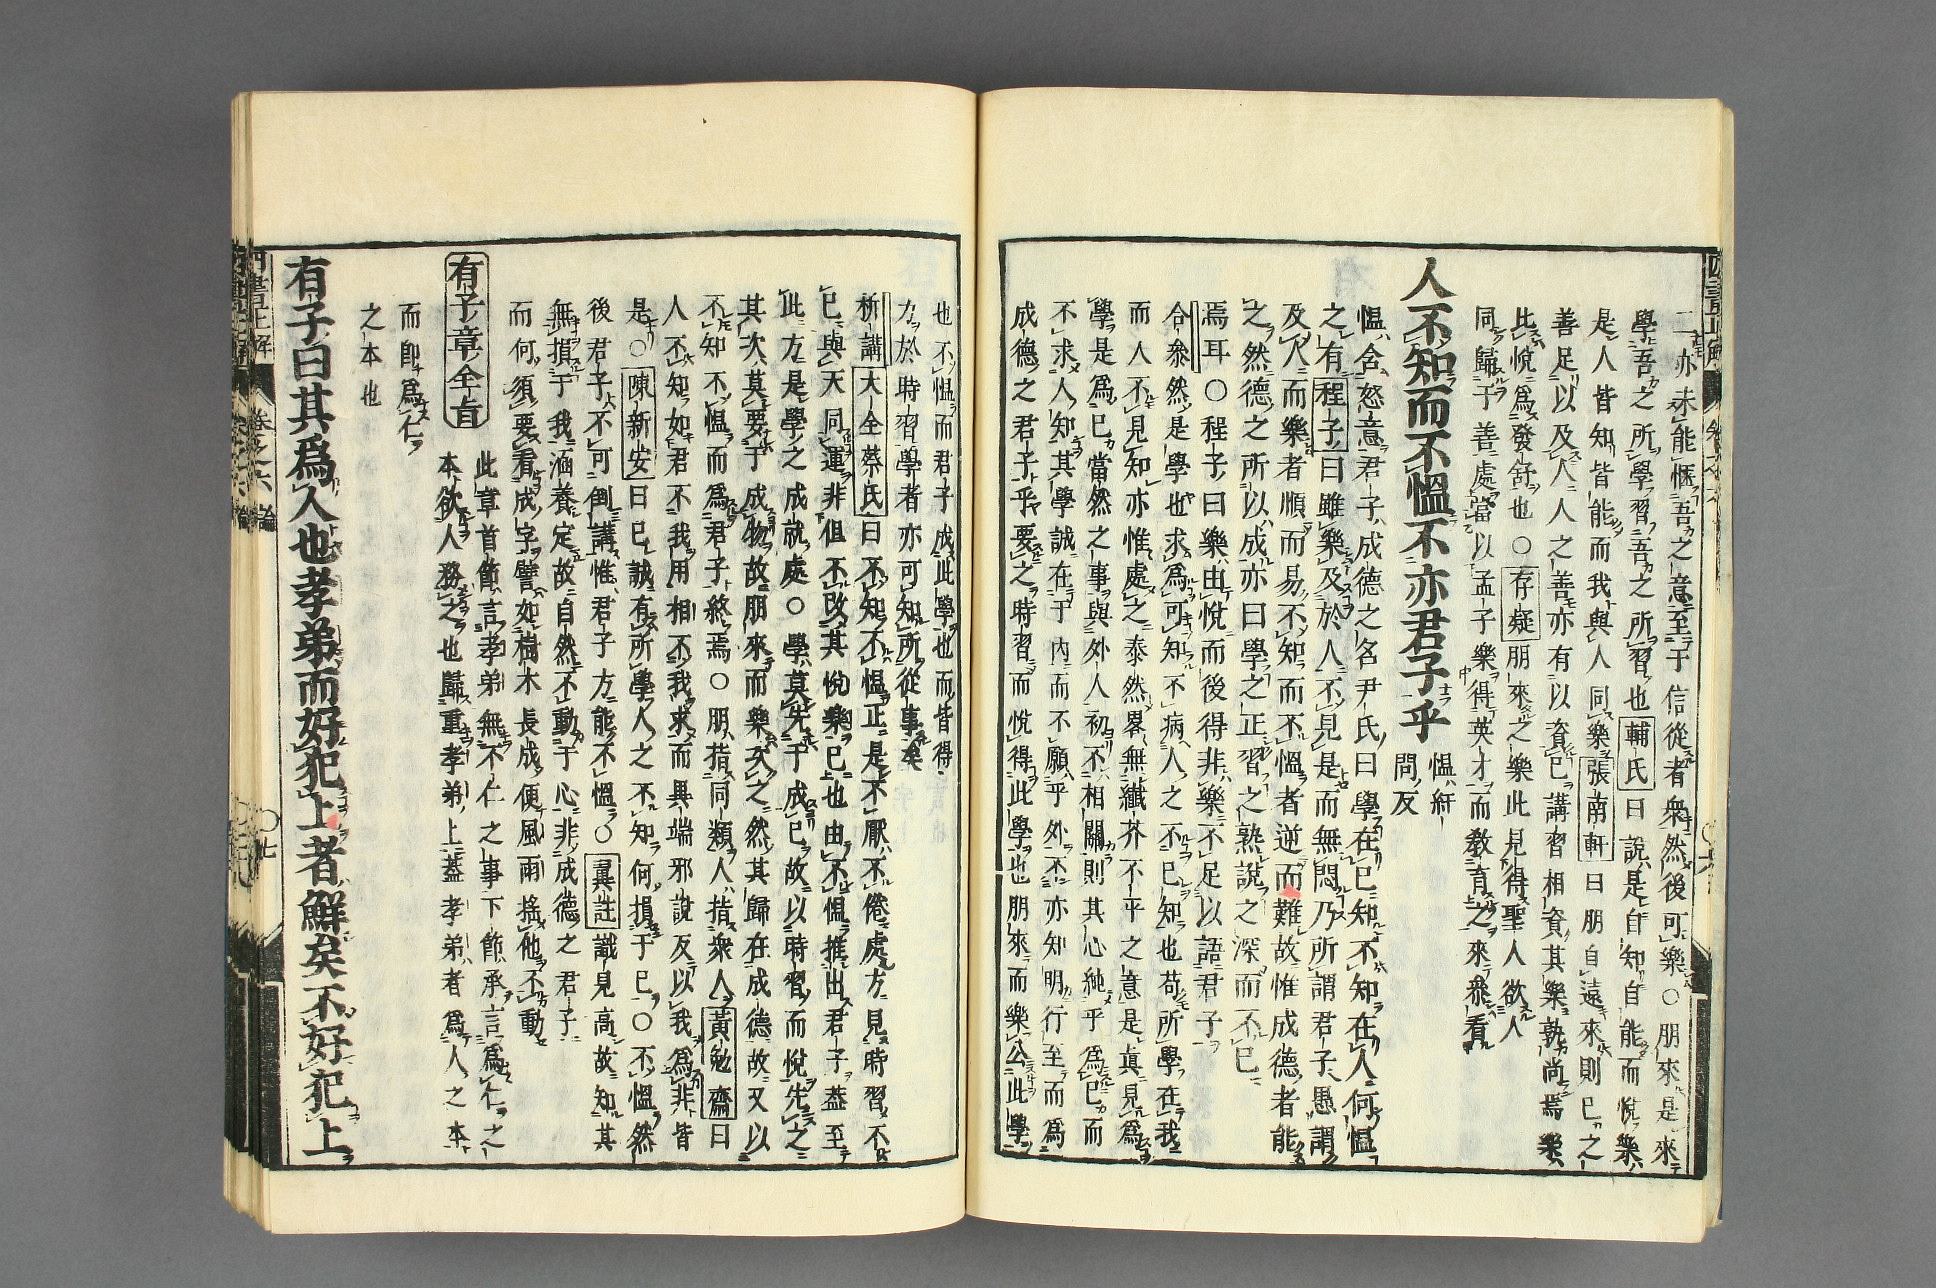 二亦未能愜吾之意至于信從者衆然後可樂○朋來是來
學吾之所學習吾之所習也輔氏曰說是自知自能而悅樂
是人皆知皆能而我與人同樂張南軒曰朋自遠來則己之
善足以及人人之善亦有以資己講習相資其樂孰尚焉樂
比悅爲發舒也○存疑朋來之樂此見得聖人欲人
同歸于善處當以孟子樂得英才而敎育之來叅看
人不知而不慍不亦君子乎
慍紆
問反
慍含怒意君子成德之名尹氏曰學在己知不知在人何慍
之有程子曰雖樂及於人不見是而無悶乃所謂君子愚謂
及人而樂者順而易不知而不慍者逆而難故惟成德者能
之然德之所以成亦曰學之正習之熟說之深而不已
焉耳○程子曰樂由悅而後得非樂不足以語君子
合叅然是學也求爲可知不病人之不己知也苟所學在我
而人不見知亦惟處之泰然畧無纖芥不平之意是眞見爲
學是爲己當然之事與外人初不相關則其心純乎爲己而
不求人知其學誠在于內而不願乎外不亦知明行至而爲
成德之君子乎要之時習而悅得此學也朋來而樂公此學
也不慍而君子成此學也而皆得
力於時習學者亦可知所從事矣
析講大全蔡氏曰不知不慍正是不厭不倦處方見時習不
已與天同運非但不改其悅樂已也由不慍推出君子葢至
此方是學之成就處○學莫先于成己故以時習而悅先之
其次莫要于成物故朋來而樂次之然其歸在成德故又以
不知不慍而爲君子終焉○朋指同類人指衆人黃勉齋曰
人不知如君不我用相不我求而異端邪說反以我爲非皆
是○陳新安曰己誠有所學人之不知何損于己○不慍然
後君子不可倒講惟君子方能不慍○翼註識見高故知其
無損于我涵養定故自然不動于心非成德之君子
而何須要看成字譬如樹木長成便風雨搖他不動
有子章全旨
此章首節言孝弟無不仁之事下節承言爲仁之
本欲人務之也歸重孝弟上葢孝弟者爲人之本
而卽爲仁
之本也
有子曰其爲人也孝弟而好犯上者鮮矣不好犯上